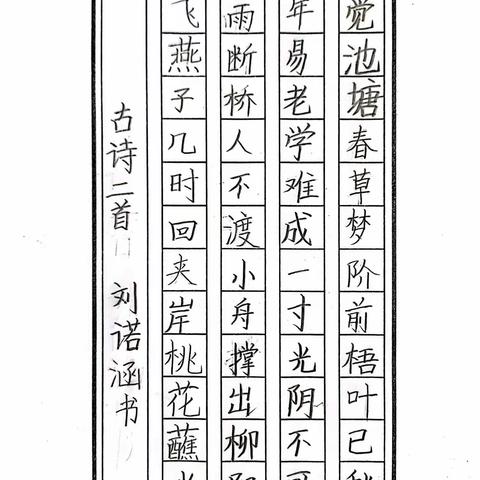 觉池塘春草梦阶前梧叶已
年易老学难成一寸光阴不
雨断桥人不渡小舟撑出柳
飞燕子几时回夹岸桃花蘸
古诗二首 刘诺涵书